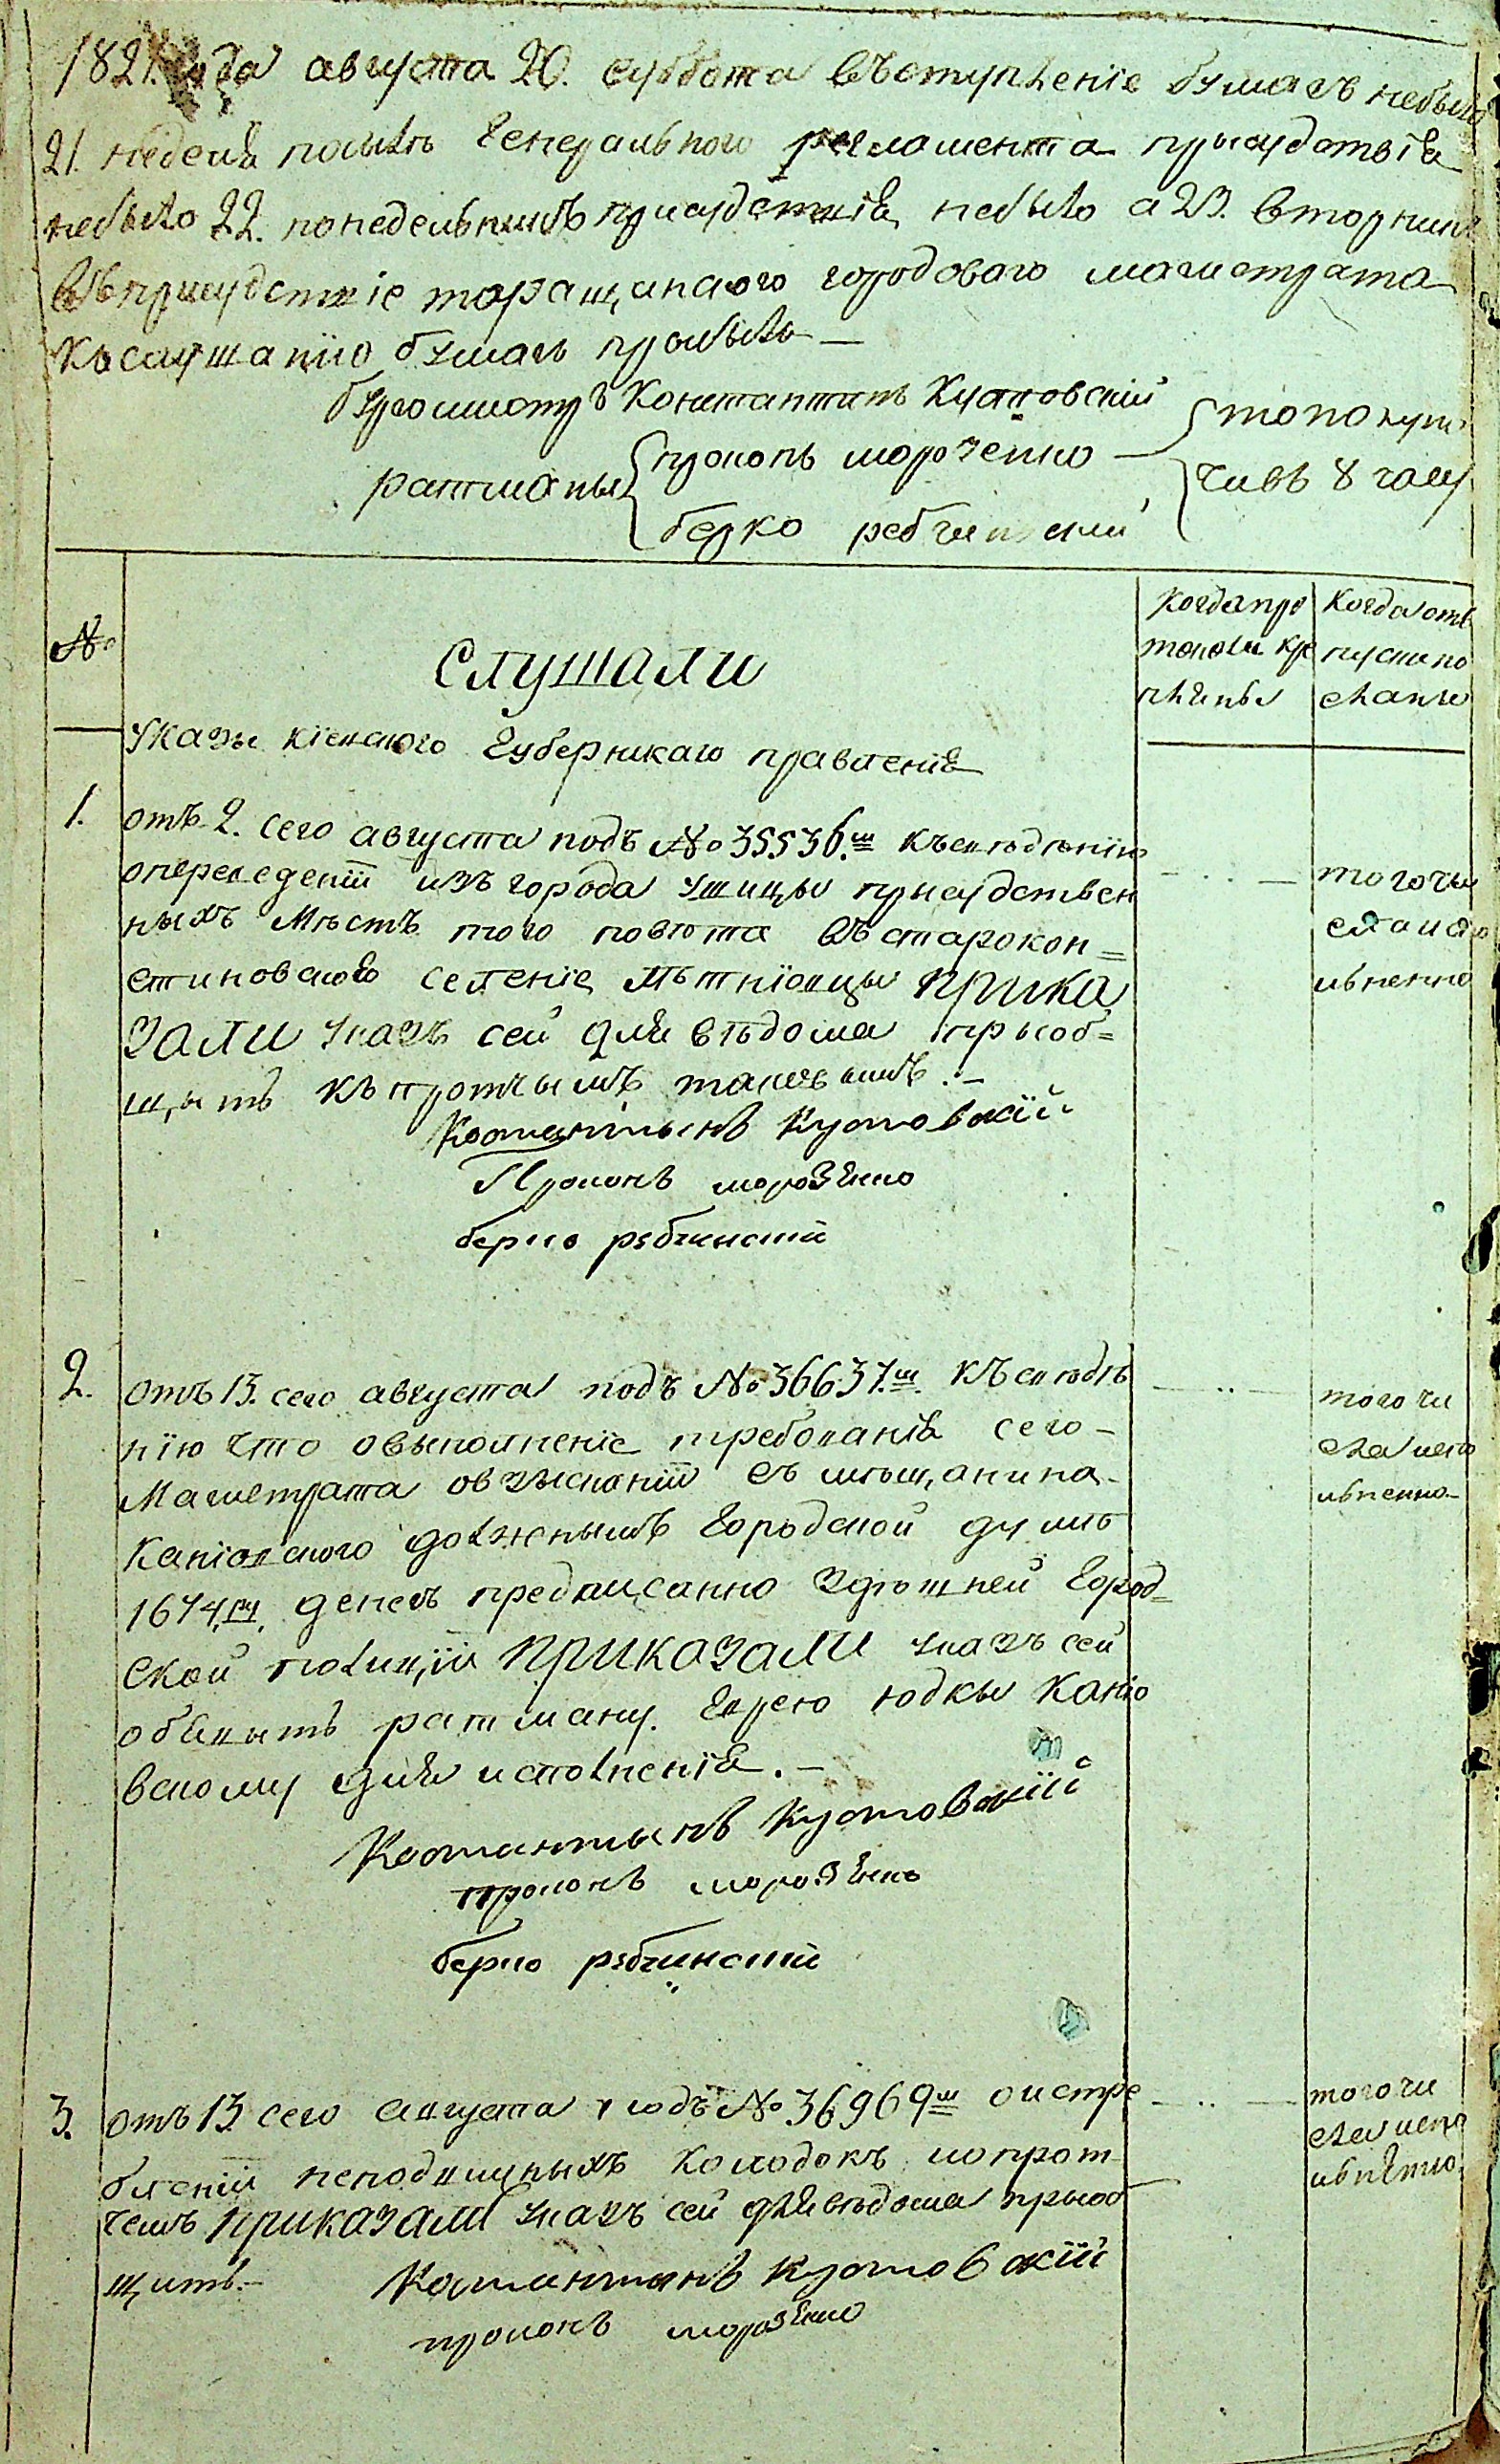 1821. года августа 20. субботa въступленіе бумагъ небыло
21. неделя посылѣ Генерального регламента присудствія
небыло 22. понедельникъ присудствія небыло а 23. вторникъ
въприсудствіе таращанского городового магистрата
къслушанїю бумагъ прибыль —
бургомистръ Константинъ Кутовскій
ратманы прокопъ морозенко —
берко ребчинский
пополу
чивъ 8 часу
№
Слушали
когда про
токолы кре
плены
Когда от
пускипо
сланы
Указы кіевского Губернскаго правленія
1. отъ 2. сего августа подъ № 35536.м късвѣдѣнїю
опереведенїи изъ города ушицы присудствен
ныхъ Мѣстъ того повѣта въ старокон=
стиновского селеніе мѣтнїовцы прика
зали указъ сей для вѣдома приоб=
щыть къпротчымъ таковымъ. —
Костянтынъ Кутовскїй
Прокопъ морозенко
берко рѣбчинский
того чи
сла испо
лненно
2. отъ 13. сего августа подъ № 36637.м. късвѣдѣ
нїю что овыполненіе требованія сего —
Магистрата овзысканїи съ мѣщанина
Канїовского должнымъ Городской думѣ
1674. денегъ предписанно здѣшней Город=
ской полицїи приказали указъ сей
обявить ратману. Еврею юдкы Канїо
вскому для исполненія. —
Костянтынъ Кутовскїй
прокопъ морозенко
берко рѣбчинский
того чи
сла испо
лненно —
3. отъ 13 сего августа подъ № 36969м оистре
бленїи неподвижныхъ колодокъ ипрот
чемъ приказали указъ сей для вѣдома приоб
щить. —
Костянтынъ Кутовскїй
прокопъ морозенко
того чи
сла испо
лненно.